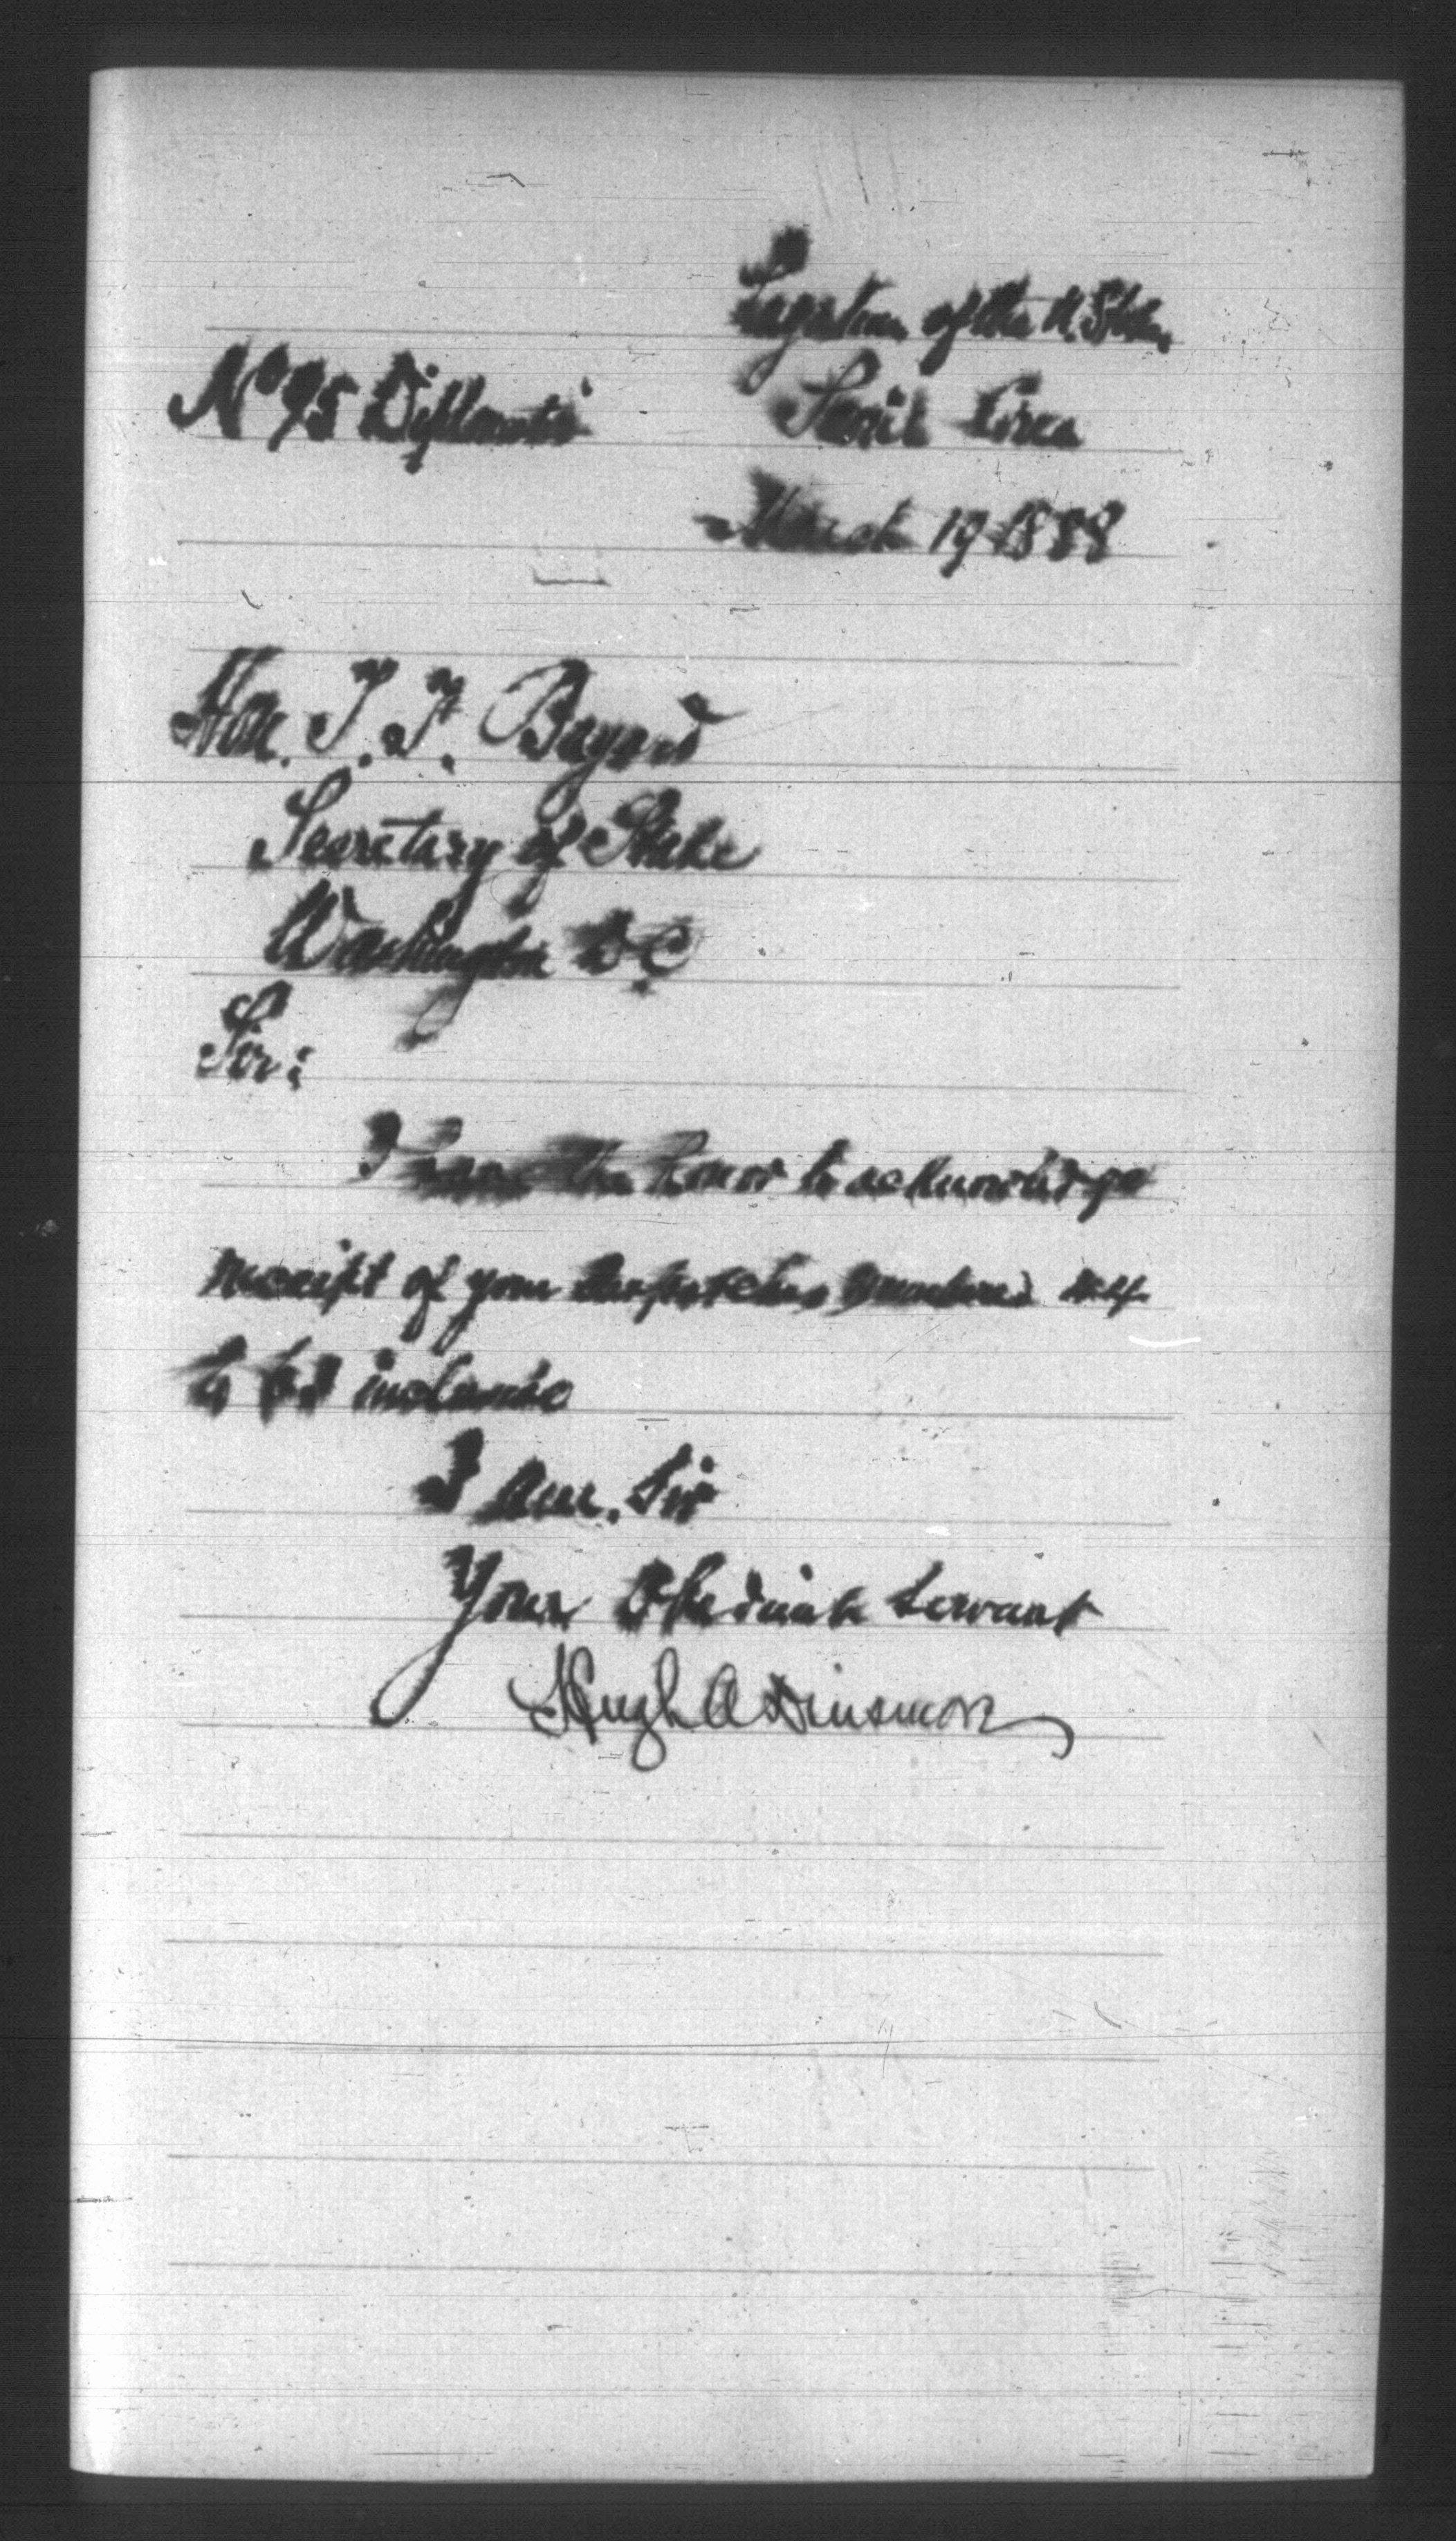 Legation of the U. States
Seoul Corea
No 95 Diplomatic
March 19 1888
Hon. T. F. Bayard
Secretary of State
Washington D C
Sir:
I have the honor to acknowledge
receipt of your despatches numbered
to inclusive
I am, Sir
Your Obedient Servant
Hugh A Dinsmore